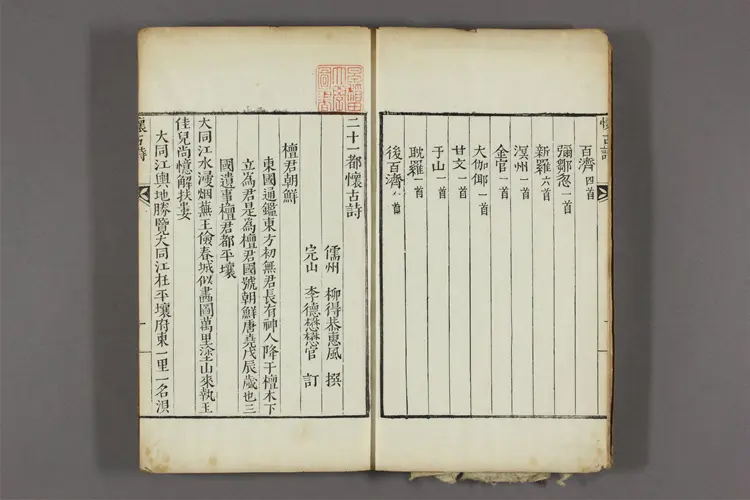 懷古詩
百濟四首
彌鄒忽一首
新羅六首
溟州一首
金官一首
大伽倻一首
甘文一首
于山一首
耽羅一首
後百濟首
二十一都懷古詩
儒州 柳得恭惠風 撰
完山 李德懋懋官 訂
檀君朝鮮
東國通鑑東方初無君長有神人降于檀木下
立為君是為檀君國號朝鮮唐堯戊辰歲也三
國遺事檀君都平壤
大同江水浸烟蕪王儉春城似畫圖萬里塗山來執玉
佳兒尚憶解扶婁
大同江輿地勝覽大同江在平壤府東一里一名浿
懷古詩
一